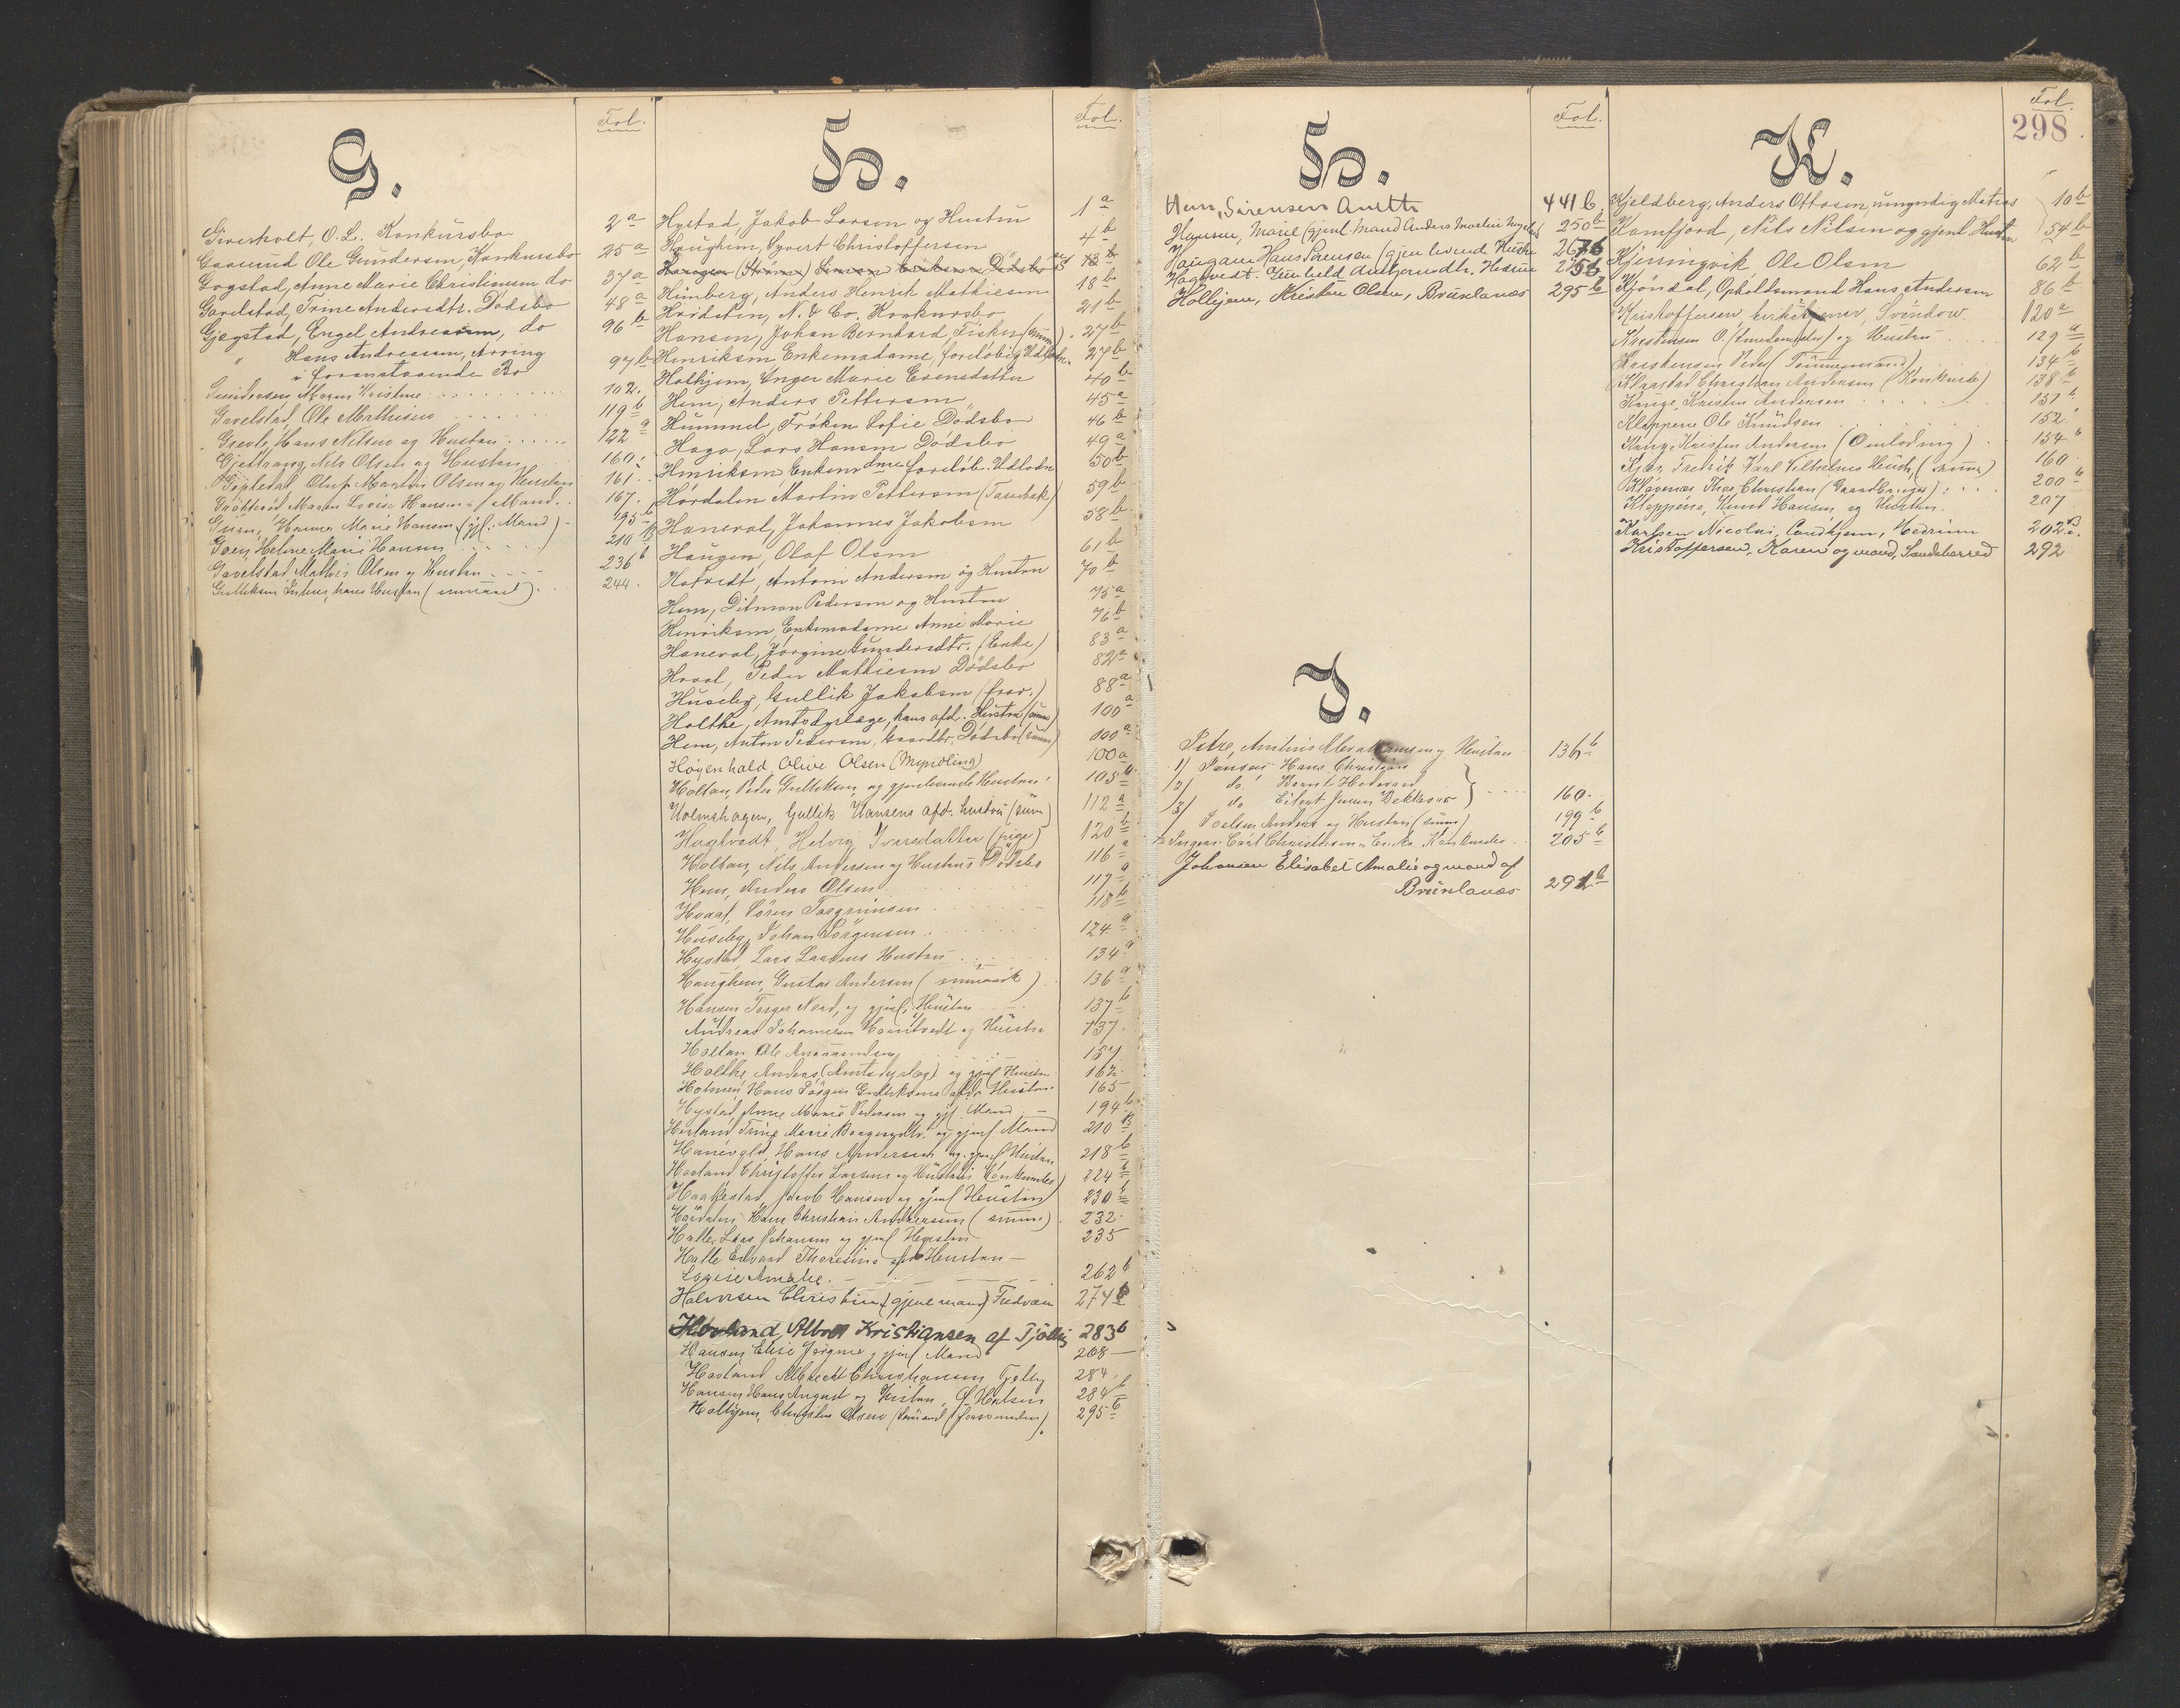 G.
Fol.
Giverholt, O. L. Konkursbo 2a
Gaasrud Ole Gundersen, Konkursbo 25a
Gogstad, Anne Marie Christiansen do 37a
Gavelstad, Trine Andersdtr. Dødsbo 48a
Gjegstad, Engel Andreassen, do 96b
" Hans Andreassen, Arving
i foranstaaende Bo 97b
Gundersen, Maren Kristine 102.
Gavelstad, Ole Mathisen 119b
Grevle, Hans Nilsen og Hustru 122a
Nils Olsen og Hustru 160.
Oluf Martin Olsen og Hustru 161.
Maren Lovise Hansen's Mand 167.
Hanna Marie Hansen (gjl. Mand) 195b
Goen, Helene Marie Hansen 210B
Gavelstad Mathis Olsen og Hustru 236b
Gulliksen hans Hustru 244.
H.
Fol.
Hystad, Jakob Larsen og Hustru 1a
Haughem, Syvert Christoffersen 4b
Haugen Simon Eriksens Dødsbo 13b
Himberg, Anders Henrik Mathiesen 18b
Hvidsten, N. & Co. Konkursbo 21b
Hansen, Johan Bernhard, Fisker (summ) 27b
Henriksen Enkemadame, foreløbig Udlodn. 27b
Holhjem, Inger Marie Evensdatter 40b
Hem, Anders Pettersen 45a
Hummel, Frøken Sofie Dødsbo 46b
Haga, Lars Hansen Dødsbo 49a
Henriksen, Enkemdme foreløb. Udlodn 50b
Hørdalen Martin Pettersen 59b
Haneval, Johannes Jakobsen 58b
Haugen, Olaf Olsen 61b
Hotvedt, Antoni Andersen og Hustru 70b
Hem, Ditman Pedersen og Hustru 75a
Henriksen, Enkemadame Anne Marie 76b
Haneval, Jørgine Gundersdtr. (Enke) 83a
Hvaal, Peder Mathiesen Dødsbo 82a
Huseby, Gullik Jakobsen (frav.) 88a
Holthe, Amtsdyrlæge, hans afd. Hustru (summ) 100a
Hem, Anton Pedersen, Gaardbr. Dødsbo (summ) 100a
Høyenhald Olive Olsen (Myndling) 100a
Holtan, Peder Gulliksen og gjenlevende Hustru 105b
Holmshagen, Gullik Hansens afd. hustru (sum) 112a
Hagtvedt, Helvig Iversdatter (pige) 120b
Holtan, Nils Andersen og Hustrus Dødsbo 116a
Hem, Anders Olsen 117a
Hvaal, Søren Torgrimsen 118b
Huseby, Johan Jørgensen 124a
Hystad, Lars Larsens Hustru 134a
Haughem, Gustav Andersen 136a
Hansen Torger Nord, og gjenl. Hustru 137b
Andreas Johannesen Homtvedt og Hustru 137.
Holtan Ole Amundsen 157
Holthe Anders (Amtsdyrlæg) og gjenl Hustru 162.
Holmen, Hans Jørgen Gulliksens afd. Hustru 165
Hystad, Anne Marie Pedersen og gjl Mand 194b
Havland, Trine Marie og gjenl Mand 210B
Hanevold, Hans Andersen og gjenl Hustru 218b
Havland, Christoffer Larsen og Hustrus 224b
Haakestad, Jacob Hansen og gjenl Hustru 230b
Hørdalen Hans Christian Andreassen (summ.) 232.
Halle, Lars Johansen og gjenl Hustru 235
Halle Edvard Thoresens afd Hustru
Lovise Amalie. 262b
Halvorsen Christine (gjenl mand) 274b
Hovland, Albr Kristiansen af Tjølling 283b
Hansen Elise Jørgine og gjenl Mand 268
Havland Albrecht Christiansen 284.
Hansen, Hans August og Hustru 284b
Holhjem, Christen Olsen 295b
H.
Fol.
Hem, Sørensen Anette 441b.
Hansen, Marie (gjenl. Mand Anders Martin) 250b
Haugane Hans Sørensen (gjenlevende Hustru
Hagtvedt. Gunhild
Holhjem, Kristen Olsen, Brunlanæs 295b
I.
136b
1) Jensen Hans Christian
2) do Bernt
3) do 160.
Joelsen Anders og Hustru (summ) 199b
205b
Johansen Elisabet Amalie og mand af
Brunlanæs 291b
K.
Fol.
298
Kjeldberg, Anders Ottosen, umyndig Matros 10b
Kamfjord, Nils Nilsen og gjenl. Hustru 54b
Kjerringvik, Ole Olsen 62b
Kjøndal, Opholdsmand Hans Andersen 86b
Kristoffersen 120a
Kristensen O. og Hustru 129a
Kristensen Peder (Tømmermand) 134b
Klaastad Christian Andersen (Konkurs) 138b
Kauge, Kristen Andersen 151b
Kleppene Ole Knudsen 152
Kaug. Kristen Andersen (Omlodning) 154b
Fredrik Karl (summ) 160
Kløvenæs Thor Christian (Gaardbruger) 200b
Kleppene, Knud Hansen og Hustru 207
Karlsen Nicolai, Landhjem, Hedrum 202B
Kristoffersen, Karen og mand, Sandeherred 292